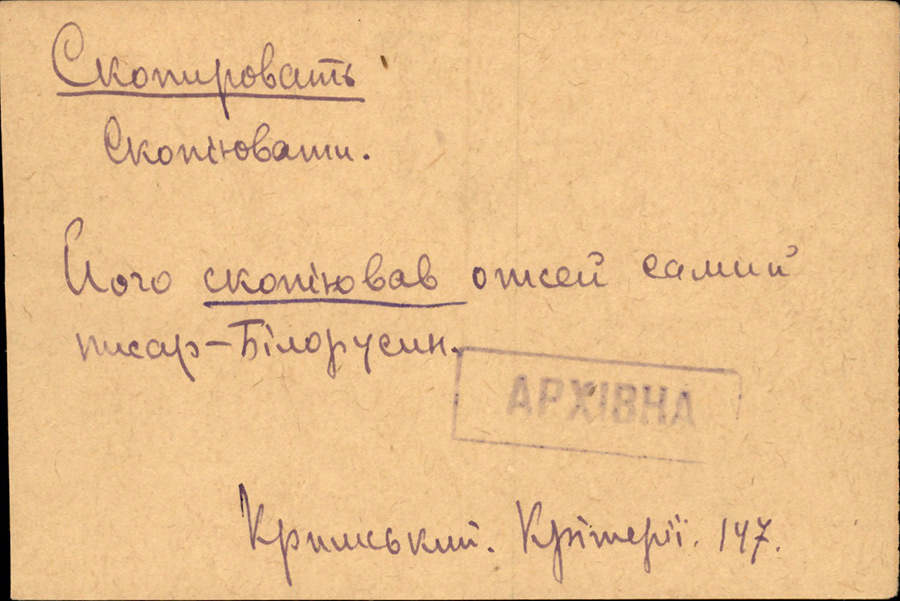 Скопировать
Скопіювати.
Його скопіював отсей самий
писар-Білорусин.
АРХІВНА
Кримський. Крітерії. 147.